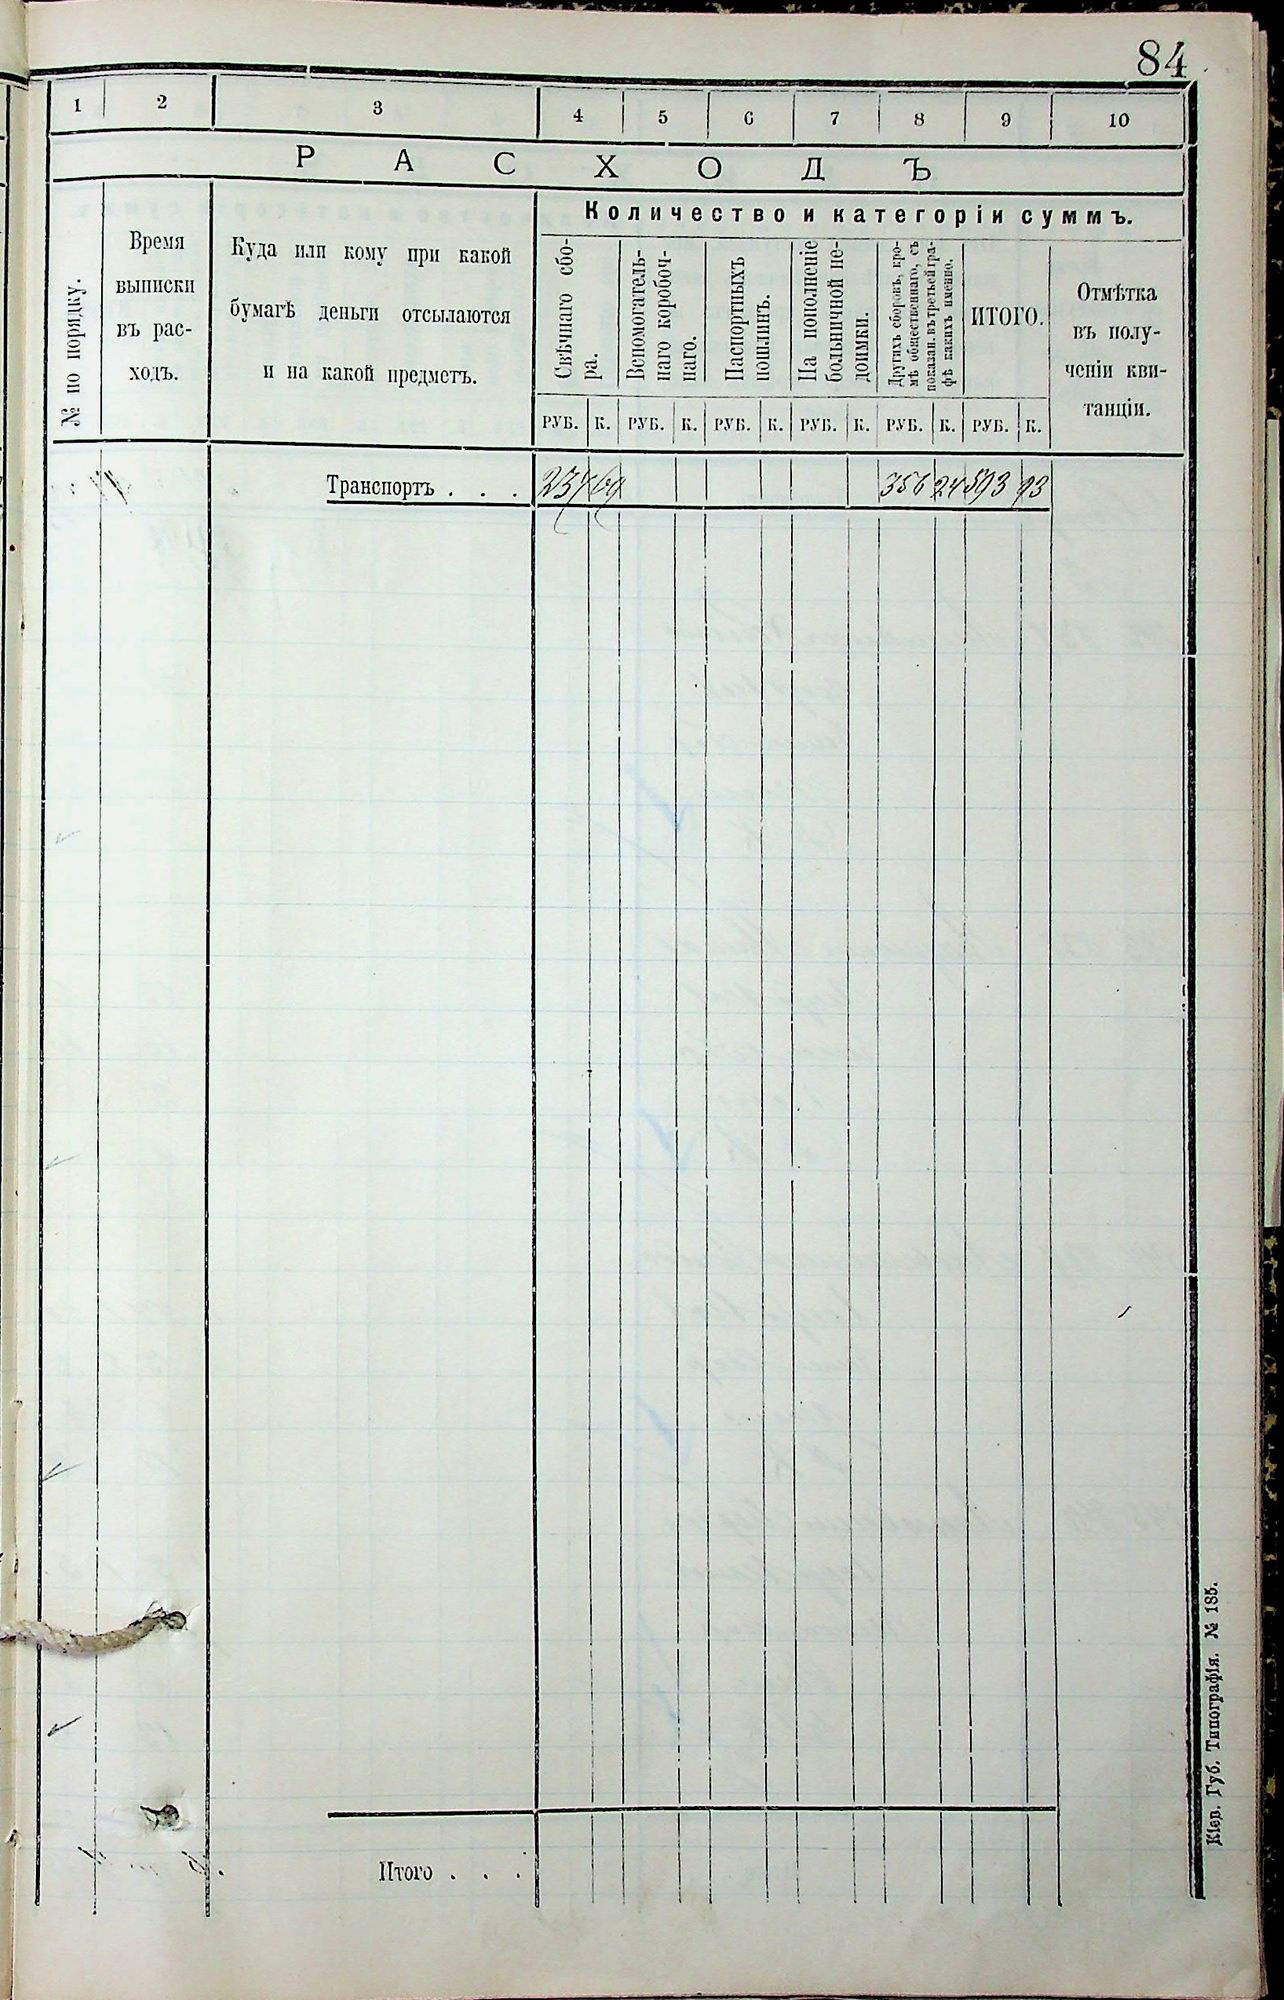 84
1 2 3 4 5 6 7 8 9 10
РАСХОДЪ
№ по порядку.
Время
выписки
въ рас-
ходъ.
Куда или кому при какой
бумагѣ деньги отсылаются
и на какой предметъ.
Количество и категоріи суммъ.
Свѣчнаго сбо-
ра.
Вспомогатель-
наго коробоч-
наго.
Паспортныхъ
пошлинъ.
На пополненіе
больничной не-
доимки.
Другихъ сборовъ, кро-
мѣ общественнаго, съ
показан. въ третьей гра-
фѣ какихъ именно.
ИТОГО.
Отмѣтка
въ полу-
ченіи кви-
танціи.
РУБ. К. РУБ. К. РУБ. К. РУБ. К. РУБ. К. РУБ. К.
Транспортъ . . . 237 69 356 24 593 93
Итого . . .
Кіев. Губ. Типографія. № 185.